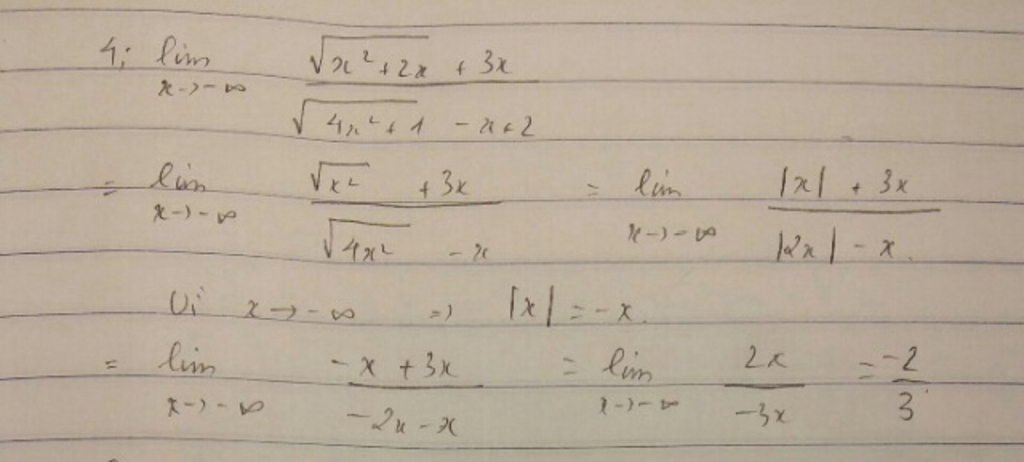 4; lim x→-∞ (√(x²+2x) + 3x) / (√(4x²+1) - x+2)
= lim x→-∞ (√x² + 3x) / (√4x² - x) = lim x→-∞ (|x| + 3x) / (|2x| - x.)
Vì x → -∞ => |x| = -x.
= lim x→-∞ (-x + 3x) / (-2x - x) = lim x→-∞ 2x / -3x = -2 / 3